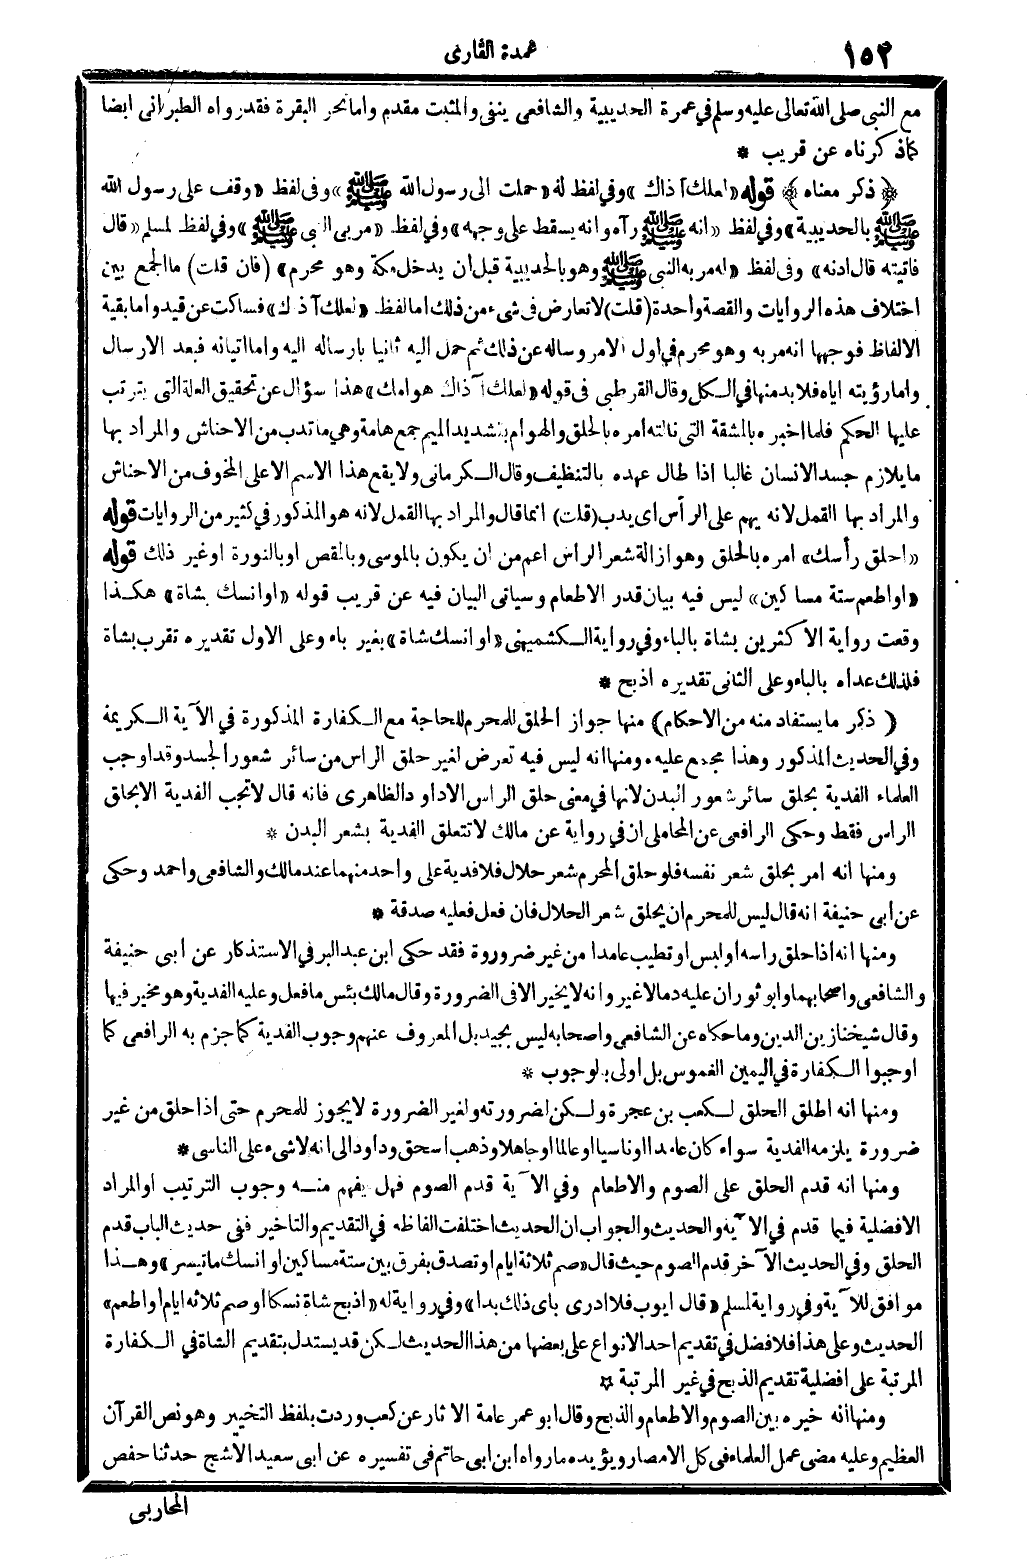 ١٥٢
عمدة القارى
مع النبي صلى الله تعالى عليه وسلم في عمرة الحديبية والشافعى ينفى والمثبت مقدم واما نحر البقرة فقد رواه الطبرانى ايضا
كما ذكرناه عن قريب *
﴿ ذكر معناه ﴾ قوله «لعلك آذاك» وفي لفظ له «حملت الى رسول الله ﷺ» وفى لفظ «وقف على رسول الله
ﷺ بالحديبية» وفي لفظ «انه ﷺ رآه وانه يسقط على وجهه» وفي لفظ «مر بى النبى ﷺ» وفي لفظ لمسلم «قال
فاتيته قال ادنه» وفى لفظ «انه مر به النبى ﷺ وهو بالحديبية قبل أن يدخل مكة وهو محرم» (فان قلت) ما الجمع بين
اختلاف هذه الروايات والقصة واحدة (قلت) لا تعارض فى شىء من ذلك اما لفظ «لعلك آذاك» فساكت عن قيد واما بقية
الالفاظ فوجهها انه مر به وهو محرم في اول الامر وساله عن ذلك ثم حمل اليه ثانيا بارساله اليه واما اتيانه فبعد الارسال
واما رؤيته اياه فلا بد منها في الكل وقال القرطبى فى قوله «لعلك آذاك هوامك» هذا سؤال عن تحقيق العلة التى يترتب
عليها الحكم فلما اخبره بالمشقة التى نالته امره بالحلق والهوام بتشديد الميم جمع هامة وهي ما تدب من الاحناش والمراد بها
ما يلازم جسد الانسان غالبا اذا طال عهده بالتنظيف وقال الكرمانى ولا يقع هذا الاسم الا على المخوف من الاحناش
والمراد بها القمل لانه يهم على الرأس اى يدب (قلت) انما قال والمراد بها القمل لانه هو المذكور في كثير من الروايات قوله
«احلق رأسك» امره بالحلق وهو ازالة شعر الراس اعم من ان يكون بالموسى وبالمقص او بالنورة او غير ذلك قوله
«او اطعم ستة مساكين» ليس فيه بيان قدر الاطعام وسياتى البيان فيه عن قريب قوله «او انسك بشاة» هكذا
وقعت رواية الاكثرين بشاة بالباء وفي رواية الكشميهنى «او انسك شاة» بغير باء وعلى الاول تقديره تقرب بشاة
فلذلك عداه بالباء وعلى الثانى تقديره اذبح *
( ذكر ما يستفاد منه من الاحكام) منها جواز الحلق للمحرم للحاجة مع الكفارة المذكورة في الآية الكريمة
وفي الحديث المذكور وهذا مجمع عليه ٠ ومنها انه ليس فيه تعرض لغير حلق الراس من سائر شعور الجسد وقد اوجب
العلماء الفدية بحلق سائر شعور البدن لانها في معنى حلق الراس الا داود الظاهرى فانه قال لا تجب الفدية الا بحلق
الراس فقط وحكى الرافعى عن المحاملى ان في رواية عن مالك لا تتعلق الفدية بشعر البدن *
ومنها انه امر بحلق شعر نفسه فلو حلق المحرم شعر حلال فلا فدية على واحد منهما عند مالك والشافعى واحمد وحكى
عن ابى حنيفة انه قال ليس للمحرم ان يحلق شعر الحلال فان فعل فعليه صدقة *
ومنها انه اذا حلق راسه او لبس او تطيب عامدا من غير ضرورة فقد حكى ابن عبد البر في الاستذكار عن ابى حنيفة
والشافعى واصحابهما وابو ثور ان عليه دما لا غير وانه لا يخير الا فى الضرورة وقال مالك بئس ما فعل وعليه الفدية وهو مخير فيها
وقال شيخنا زين الدين وما حكاه عن الشافعى واصحابه ليس بجيد بل المعروف عنهم وجوب الفدية كما جزم به الرافعى كما
اوجبوا الكفارة في اليمين الغموس بل اولى بالوجوب *
ومنها انه اطلق الحلق لكعب بن عجرة ولكن لضرورته ولغير الضرورة لا يجوز للمحرم حتى اذا حلق من غير
ضرورة يلزمه الفدية سواء كان عامدا او ناسيا او عالما او جاهلا وذهب اسحق وداود الى انه لا شىء على الناسى *
ومنها انه قدم الحلق على الصوم والاطعام وفي الآية قدم الصوم فهل يفهم منه وجوب الترتيب او المراد
الافضلية فيما قدم في الآية والحديث والجواب ان الحديث اختلفت الفاظه في التقديم والتاخير ففى حديث الباب قدم
الحلق وفي الحديث الآخر قدم الصوم حيث قال «صم ثلاثة ايام او تصدق بفرق بين ستة مساكين او انسك ما تيسر» وهذا
موافق للآية وفي رواية لمسلم «قال ايوب فلا ادرى باى ذلك بدا» وفي رواية له «اذبح شاة نسكا او صم ثلاثه ايام او اطعم»
الحديث وعلى هذا فلا فضل في تقديم احد الانواع على بعضها من هذا الحديث لكن قد يستدل بتقديم الشاة في الكفارة
المرتبة على افضلية تقديم الذبح في غير المرتبة *
ومنها أنه خيره بين الصوم والاطعام والذبح وقال ابو عمر عامة الآثار عن كعب وردت بلفظ التخيير وهو نص القرآن
العظيم وعليه مضى عمل العلماء فى كل الامصار ويؤيده ما رواه ابن ابى حاتم فى تفسيره عن ابى سعيد الاشج حدثنا حفص
المحاربى